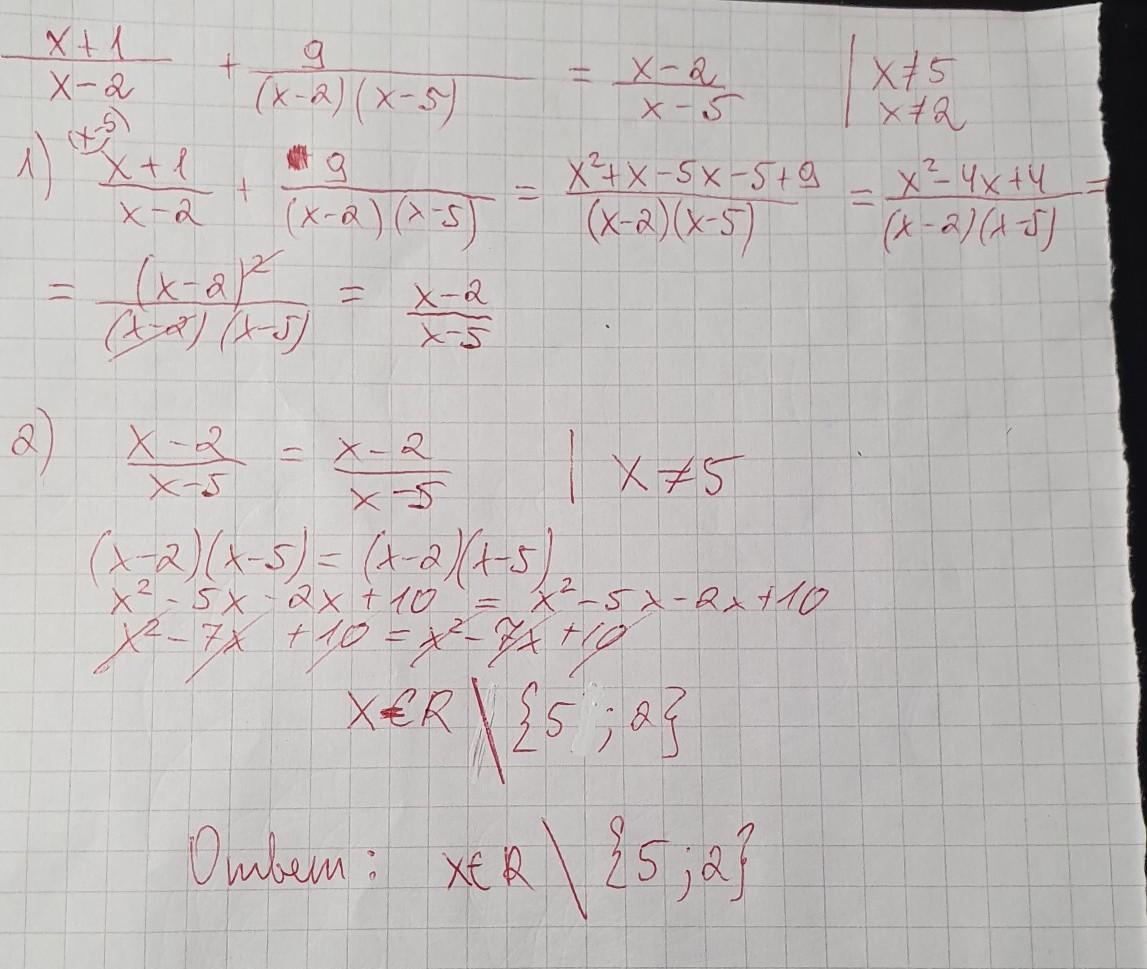 x+1/x-2 + 9/(x-2)(x-5) = x-2/x-5 | x≠5
x≠2
1) (x-5) x+1/x-2 + 9/(x-2)(x-5) = x²+x-5x-5+9/(x-2)(x-5) = x²-4x+4/(x-2)(x-5) =
= (x-2)²/(x-2)(x-5) = x-2/x-5
2) x-2/x-5 = x-2/x-5 | x≠5
(x-2)(x-5) = (x-2)(x-5)
x²-5x-2x+10 = x²-5x-2x+10
x²-7x+10 = x²-7x+10
x∈R \ {5 ; 2}
Ответ: x∈R \ {5 ; 2}